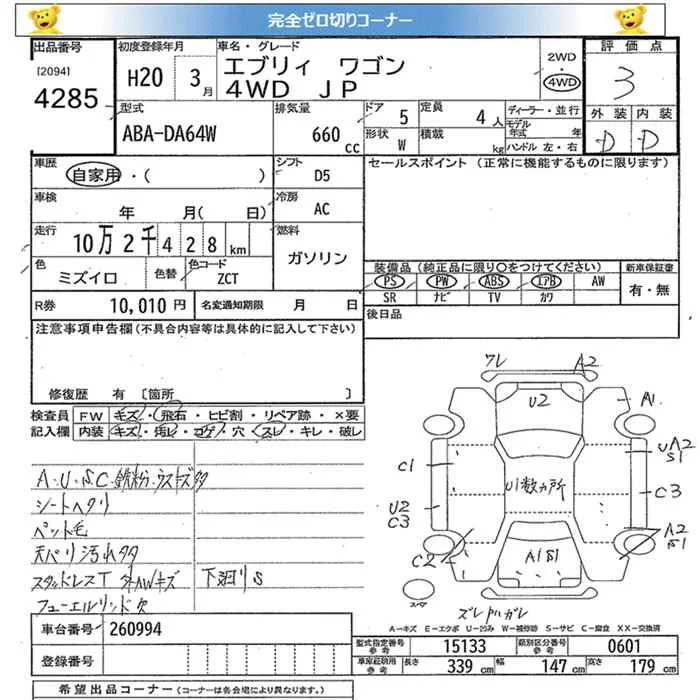 完全ゼロ切りコーナー
出品番号 [2094] 4285
初度登録年月 H20 3月
車名・グレード エブリィ ワゴン 4WD JP
2WD・4WD
評価点 3
外装 D 内装 D
型式 ABA-DA64W
排気量 660cc
ドア 5 形状 W
定員 4人 積載 kg
ディーラー・並行
モデル年式 年
ハンドル 左・右
車歴 自家用・( )
シフト D5
セールスポイント (正常に機能するものに限ります)
車検 年 月( 日)
冷房 AC
走行 10万2千428km
燃料 ガソリン
色 ミズイロ 色替 色コード ZCT
装備品 (純正品に限り○をつけてください)
新車保証書 有・無
PS PW ABS エアB AW
SR ナビ TV カワ
R券 10,010円 名変通知期限 月 日
後日品
注意事項申告欄(不具合内容等は具体的に記入して下さい)
修復歴 有 〔箇所 〕
検査員記入欄
FW キズ・飛石・ヒビ割・リペア跡・×要
内装 キズ・汚レ・コゲ・穴・スレ・キレ・破レ
A・U・S・C・鉄粉・ウスキズタ
シートヘタリ
ペット毛
天バリ汚れタタ
スタッドレスT 外AWキズ 下廻りS
フューエルリッド欠
ワレ A2
U2 A1
C1 UA2 S1
U1数ヵ所 C3
U2 C3
C2 A2 S1
A1S1
スペア
A-キズ E-エクボ U-凹み W-補修跡 S-サビ C-腐食 XX-交換済
車台番号 260994
登録番号
型式指定番号 参考 15133 類別区分番号 参考 0601
車庫証明用 参考 長さ 339cm 幅 147cm 高さ 179cm
希望出品コーナー (コーナーは各会場により異なります。)